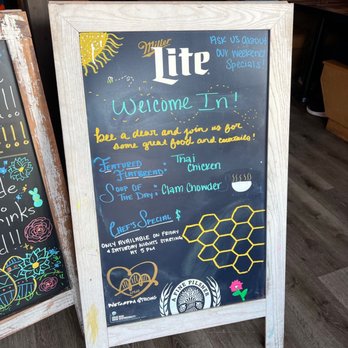 Miller
Lite
Ask us about
our weekend
specials!
Welcome In!
Bee a dear and join us for
some great food and cocktails!
Featured
Flatbread: Thai
Chicken
Soup of
the Day: Clam Chowder
Chef's Special $
Only available on Friday
& Saturday nights starting
at 5 pm